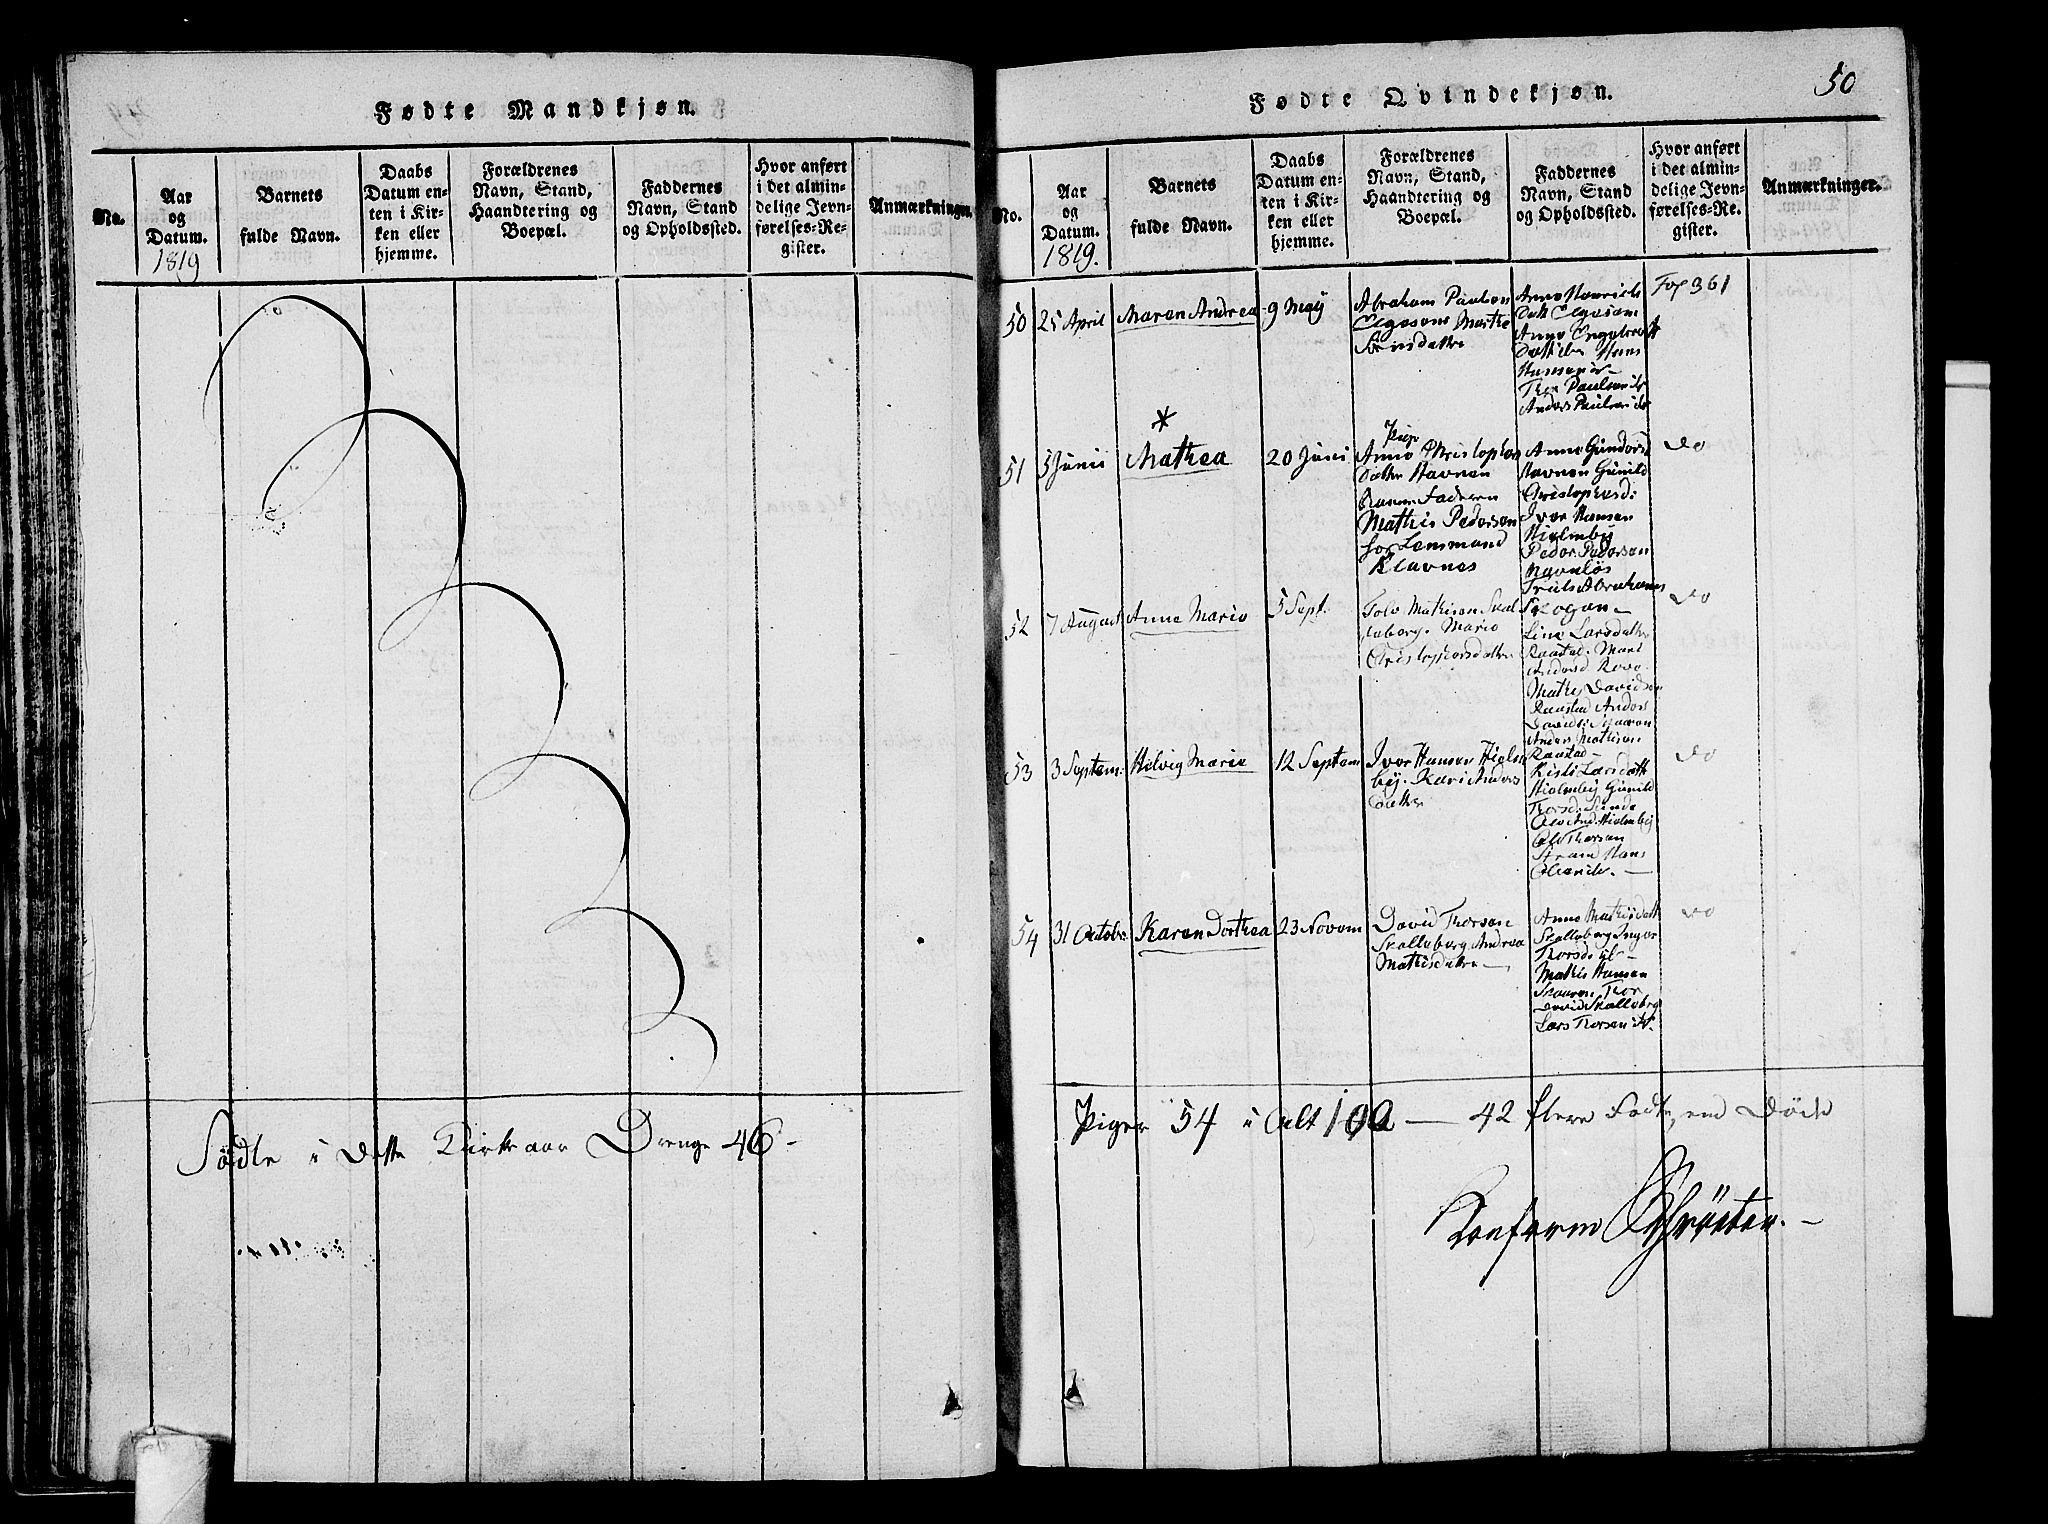 Fødte Mandkjøn.
No.
Aar
og
Datum.
1819
Barnets
fulde Navn.
Daabs
Datum en-
ten i Kir-
ken eller
hjemme.
Forældrenes
Navn, Stand,
Haandtering og
Boepæl.
Faddernes
Navn, Stand
og Opholdssted.
Hvor anført
i det almin-
delige Jevn-
førelses-Re-
gister.
Anmærkninger.
Fødte i dette Kirkeaar Drenge 46 -
50
Fødte Qvindekjøn.
No.
Aar
og
Datum.
1819.
Barnets
fulde Navn.
Daabs
Datum en-
ten i Kir-
ken eller
hjemme.
Forældrenes
Navn, Stand,
Haandtering og
Boepæl.
Faddernes
Navn, Stand
og Opholdssted.
Hvor anført
i det almin-
delige Jevn-
førelses-Re-
gister.
Anmærkninger.
50
25 April
Maren Andrea
9 May
Abraham Paulsen
Marthe
Anne Henrichs
Datt
Anne Engebrets
Hans
Thor Paulsen
Anders Paulsen
Fol 361
51
5 Junii
*
Mathea
20 Juni
Pige
Anne Christophers
Datter Havnen
Faderen
Mathis Pedersen
for Lensmand
Klavnes
Anne Gunders
Havnen Gunild
Christophersd:
Iver Hansen
Hielmbÿ
Peder Pedersen
Navnløs
Truls Abrahams
Skogen -
do
52
7 August
Anne Marie
5 Sept.
Tolv Mathisen Skal
leberg. Marie
Christophersdatter
Line Larsdatter
Raastad. Mari
Andersd
Mathis Davidsen
Raastad Anders
Davids: Skaaren
Anders Mathisen
Raastad -
do
53
3 Septem:
Helvig Marie
12 Septem
Iver Hansen Hielm
bÿ. Kari Anders
datter
Kirsti Larsdatt
Hielmbÿ Gunild
Thorsd: Sunde
Ole And: Hielmbÿ
Ole Thorsen
Strøm Hans
do
54
31 Octobr
Karen Dorthea
23 Novem
David Thorsen
Skalleberg Andrea
Mathisdatter -
Anne Mathisdatt
Skalleberg Inger
Thorsd
Mathis Hansen
Skaaren Thor
David Skalleberg
Lars Thorsen
do
Piger 54 i Alt 100 - 42 flere Fødte, end Døde
Konform Schrøeter. -